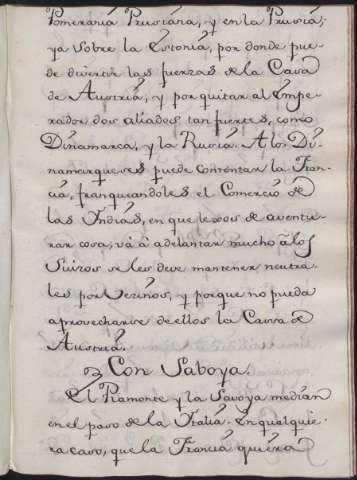 Pomerania Prusiana, y en la Prusia,
ya sobre la Estonia, por donde pue-
de divertir las fuerzas de la Casa
de Austria, y por quitar al Empe-
rador dos aliados tan fuertes, como
Dinamarca, y la Rusia. A los Di-
namarqueses puede contentar la Fran-
cia, franquiandoles el Comercio de
las Indias, en que lexos de aventu-
rar cosa, vá á adelantar mucho á los
Suizos se les deve mantener neutra-
les por Vezinos, y porque no pueda
aprovecharse de ellos la Cassa de
Austria.
Con Saboya.
El Piamonte y la Savoya median
en el paso de la Italia. En qualquie-
ra caso, que la Francia quiera